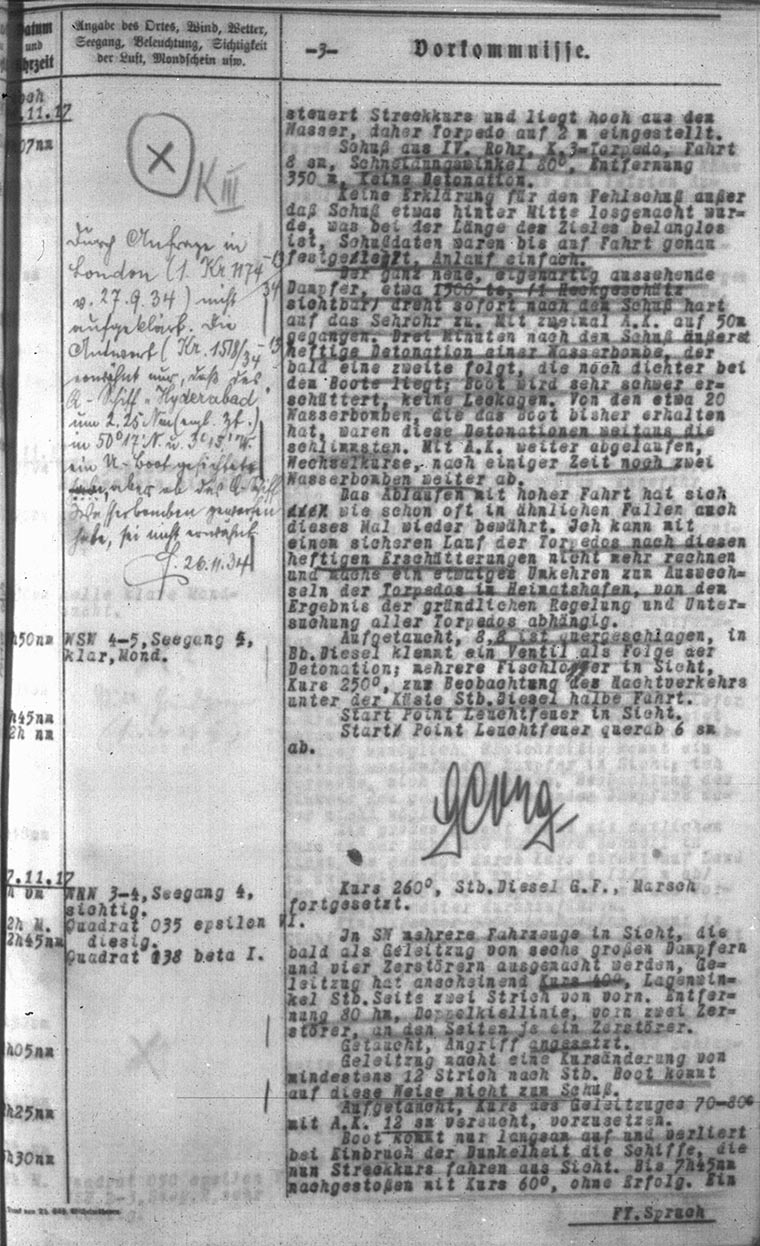 Datum
und
Uhrzeit
Angabe des Ortes, Wind, Wetter,
Seegang, Beleuchtung, Sichtigkeit
der Luft, Mondschein usw.
-3-
Vorkommnisse.
.11.17
07nm
K III
Durch Anfrage in
London (1. Kr 1174
v. 27.9.34) nicht
aufgeklärt. Die
Antwort (Kr. 1518/34
erwähnt nur, daß das
Q-Schiff "Hyderabad"
um 2.25 Nm (engl. Zt.)
in 50°17' N u. 3° 15' W.
ein U-Boot gesichtet
aber ob das Q-Schiff
Wasserbomben geworfen
habe, sei nicht erwähnt.
26.11.34
steuert Streckkurs und liegt hoch aus dem
Wasser, daher Torpedo auf 2 m eingestellt.
Schuß aus IV. Rohr, K.3-Torpedo, Fahrt
8 sm, Schneidungswinkel 80°, Entfernung
350 m, Keine Detonation.
Keine Erklärung für den Fehlschuß außer
daß Schuß etwas hinter Mitte losgemacht wur=
de, was bei der Länge des Zieles belanglos
ist, Schußdaten waren bis auf Fahrt genau
festgelegt, Anlauf einfach.
Der ganz neue, eigenartig aussehende
Dampfer, etwa 1500 ts, /1 Heckgeschütz
sichtbar/ dreht sofort nach dem Schuß hart
auf das Sehrohr zu. Mit zweimal A.K. auf 50m
gegangen. Drei Minuten nach dem Schuß äußerst
heftige Detonation einer Wasserbombe, der
bald eine zweite folgt, die noch dichter bei
dem Boote liegt; Boot wird sehr schwer er=
schüttert, keine Leckagen. Von den etwa 20
Wasserbomben, die das Boot bisher erhalten
hat, waren diese Detonationen weitaus die
schlimmsten. Mit A.K. weiter abgelaufen,
Wechselkurse, nach einiger Zeit noch zwei
Wasserbomben weiter ab.
Das Ablaufen mit hoher Fahrt hat sich
wie schon oft in ähnlichen Fällen auch
dieses Mal wieder bewährt. Ich kann mit
einem sicheren Lauf der Torpedos nach diesen
heftigen Erschütterungen nicht mehr rechnen
und mache ein etwaiges Umkehren zum Auswech=
seln der Torpedos im Heimatshafen, von dem
Ergebnis der gründlichen Regelung und Unter=
suchung aller Torpedos abhängig.
h50nm WSW 4-5, Seegang 4,
klar, Mond.
Aufgetaucht, 8,8 ist quergeschlagen, in
Bb.Diesel klemmt ein Ventil als Folge der
Detonation; mehrere Fischlogger in Sicht,
Kurs 250°, zur Beobachtung des Nachtverkehrs
unter der Küste Stb.Diesel halbe Fahrt.
h45nm Start Point Leuchtfeuer in Sicht.
2h nm Start/ Point Leuchtfeuer querab 6 sm
ab.
7.11.17
h vm NNW 3-4, Seegang 4,
sichtig.
2h M. Quadrat 035 epsilon VI.
2h45nm diesig.
Quadrat 138 beta I.
Kurs 260°, Stb.Diesel G.F., Marsch
fortgesetzt.
In SW mehrere Fahrzeuge in Sicht, die
bald als Geleitzug von sechs großen Dampfern
und vier Zerstörern ausgemacht werden, Ge=
leitzug hat anscheinend Kurs 40°, Lagenwin=
kel Stb.Seite zwei Strich von vorn. Entfer=
nung 80 hm, Doppelkiellinie, vorn zwei Zer=
störer, an den Seiten je ein Zerstörer.
Getaucht, Angriff angesetzt.
h05nm Geleitzug macht eine Kursänderung von
mindestens 12 Strich nach Stb. Boot kommt
auf diese Weise nicht zum Schuß.
h25nm Aufgetaucht, Kurs des Geleitzuges 70-80°
mit A.K. 12 sm versucht, vorzusetzen.
h30nm Boot kommt nur langsam auf und verliert
bei Einbruch der Dunkelheit die Schiffe, die
nun Streckkurs fahren aus Sicht. Bis 7h45nm
nachgestoßen mit Kurs 60°, ohne Erfolg. Ein
FT.Spruch